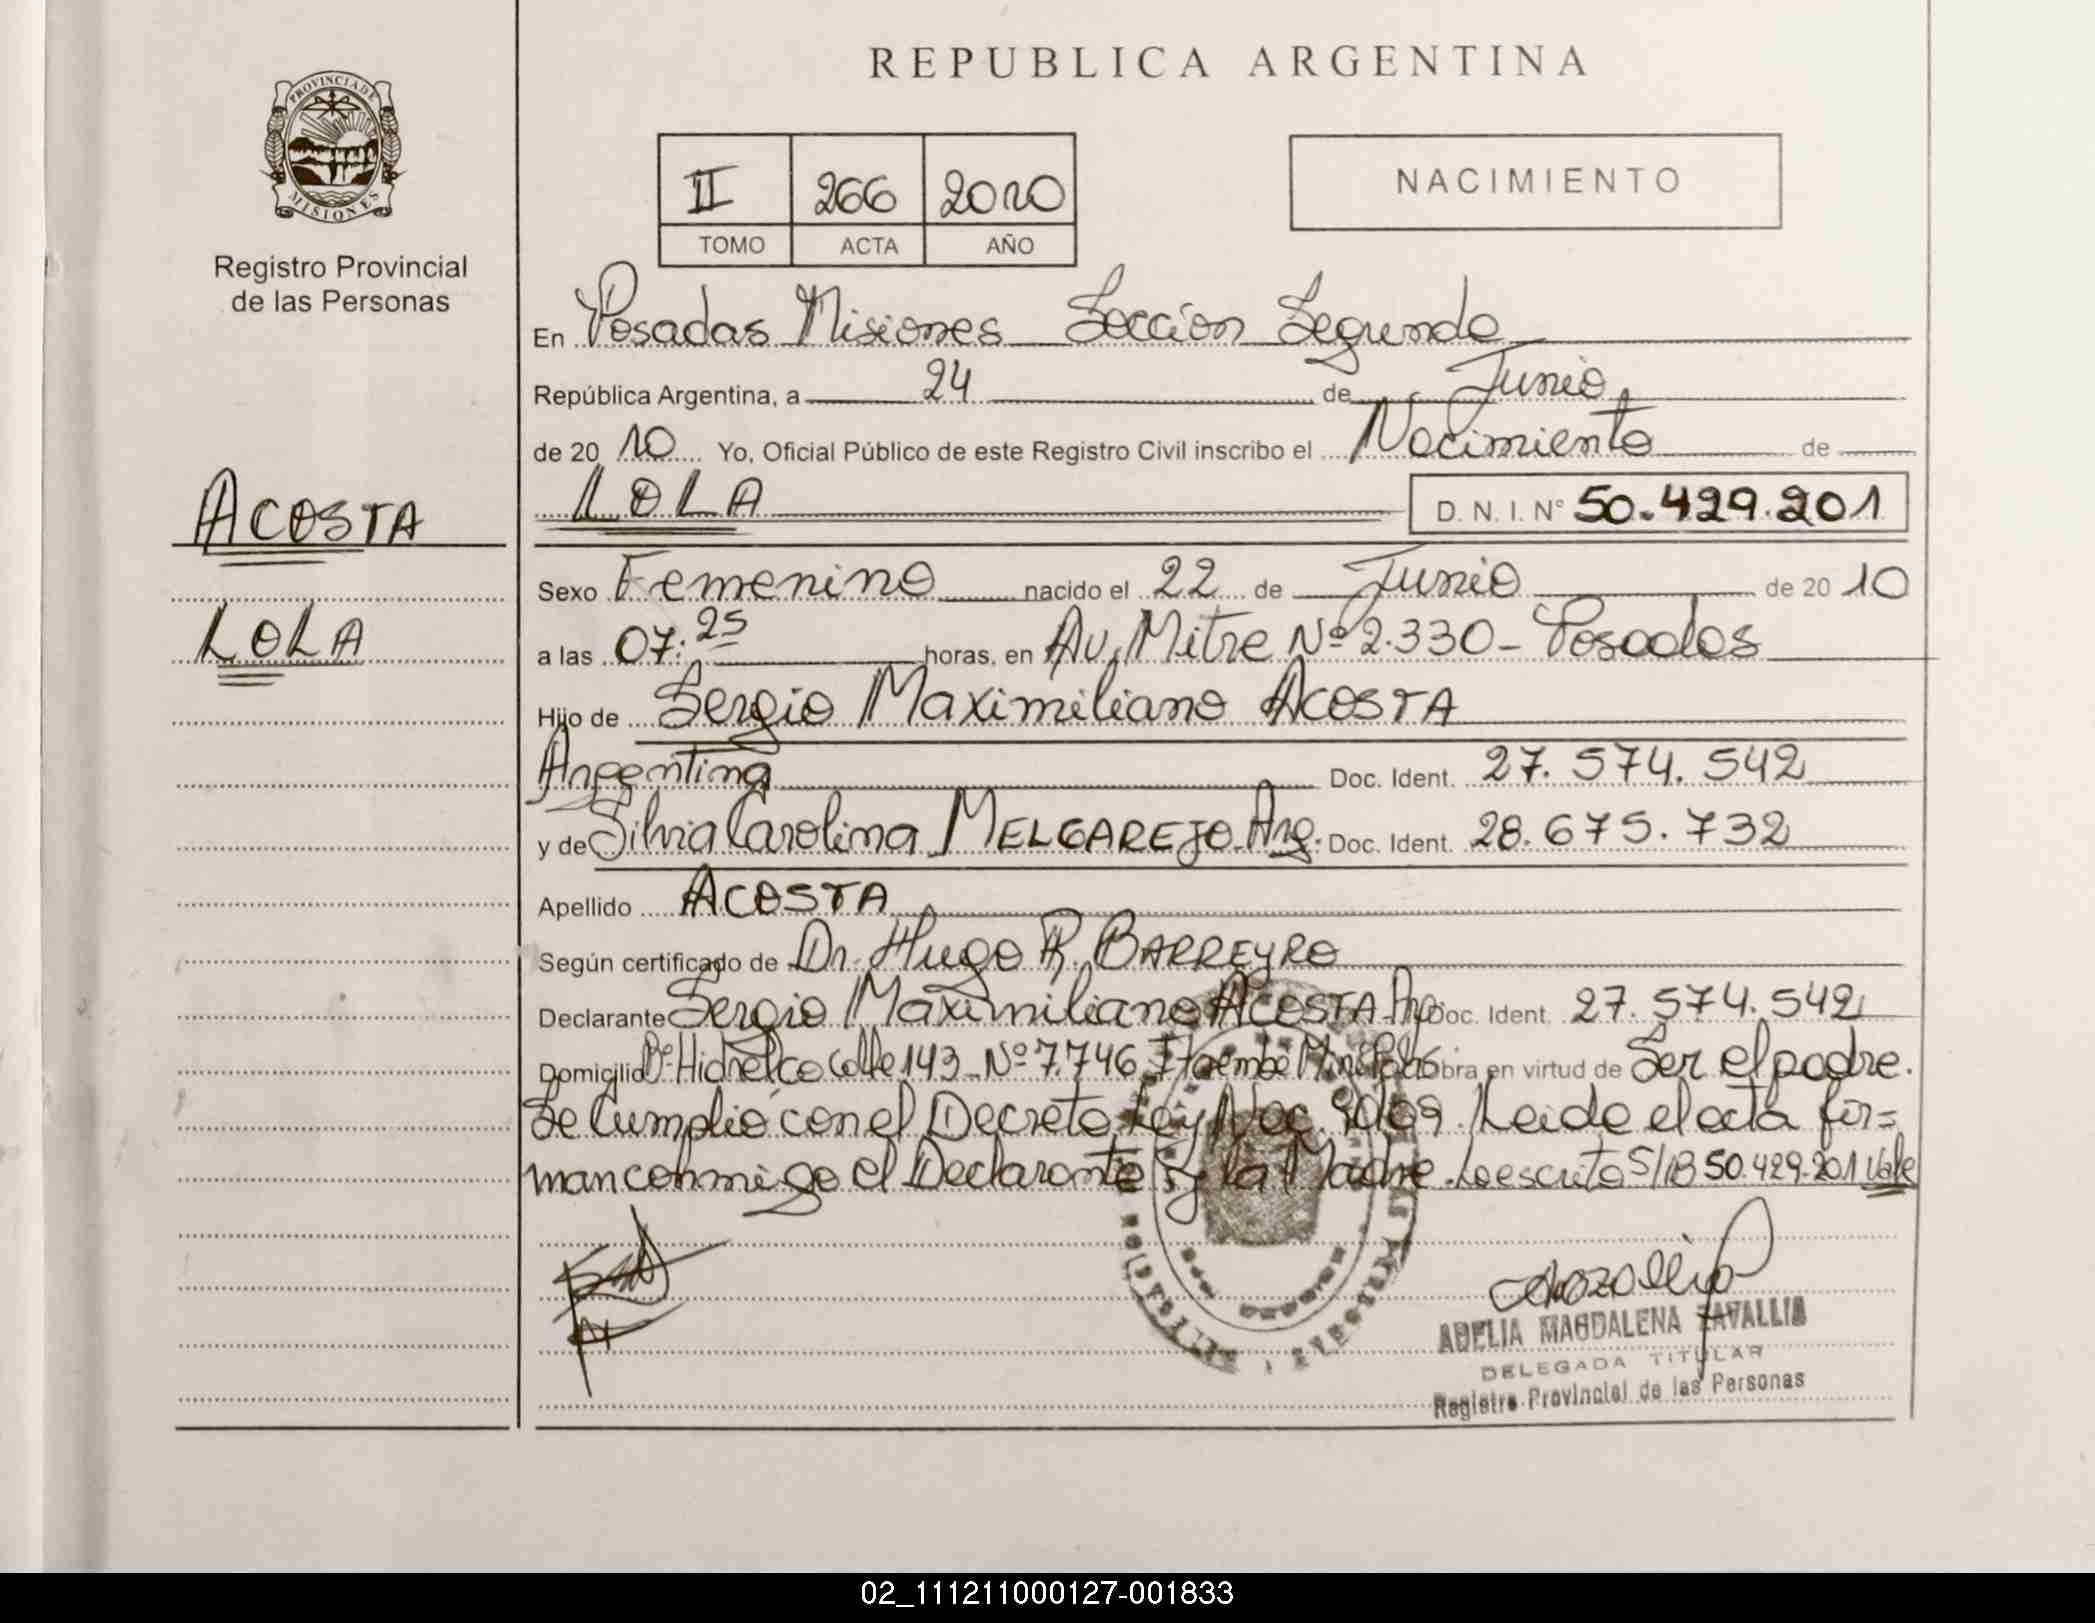 REPUBLICA ARGENTINA
PROVINCIA DE
MISIONES
Registro Provincial
de las Personas
II 266 2010
TOMO ACTA AÑO
NACIMIENTO
En Posadas Misiones Sección Segunda
República Argentina, a 24 de Junio
de 20 10 Yo, Oficial Público de este Registro Civil inscribo el Nacimiento de
ACOSTA
LOLA
LOLA
D. N. I. Nº 50.429.201
Sexo Femenino nacido el 22 de Junio de 20 10
a las 07:25 horas, en Av. Mitre Nº 2.330 - Posadas
Hijo de Sergio Maximiliano ACOSTA
Argentina Doc. Ident. 27.574.542
y de Silvia Carolina MELGAREJO Arg. Doc. Ident. 28.675.732
Apellido ACOSTA
Según certificado de Dr. Hugo R. BARREYRO
Declarante Sergio Maximiliano ACOSTA Arg Doc. Ident. 27.574.542
Domicilio Bº Hidrelco Calle 143 Nº 7.746 Itaembé Miní Pdas Obra en virtud de Ser el padre.
Se Cumplió con el Decreto Ley Nac. Leída el acta fir=
man conmigo el Declarante y la Madre. Lo escrito S/B 50.429.201 Vale
ADELIA MAGDALENA ZAVALLIA
DELEGADA TITULAR
Registro Provincial de las Personas
02_111211000127-001833